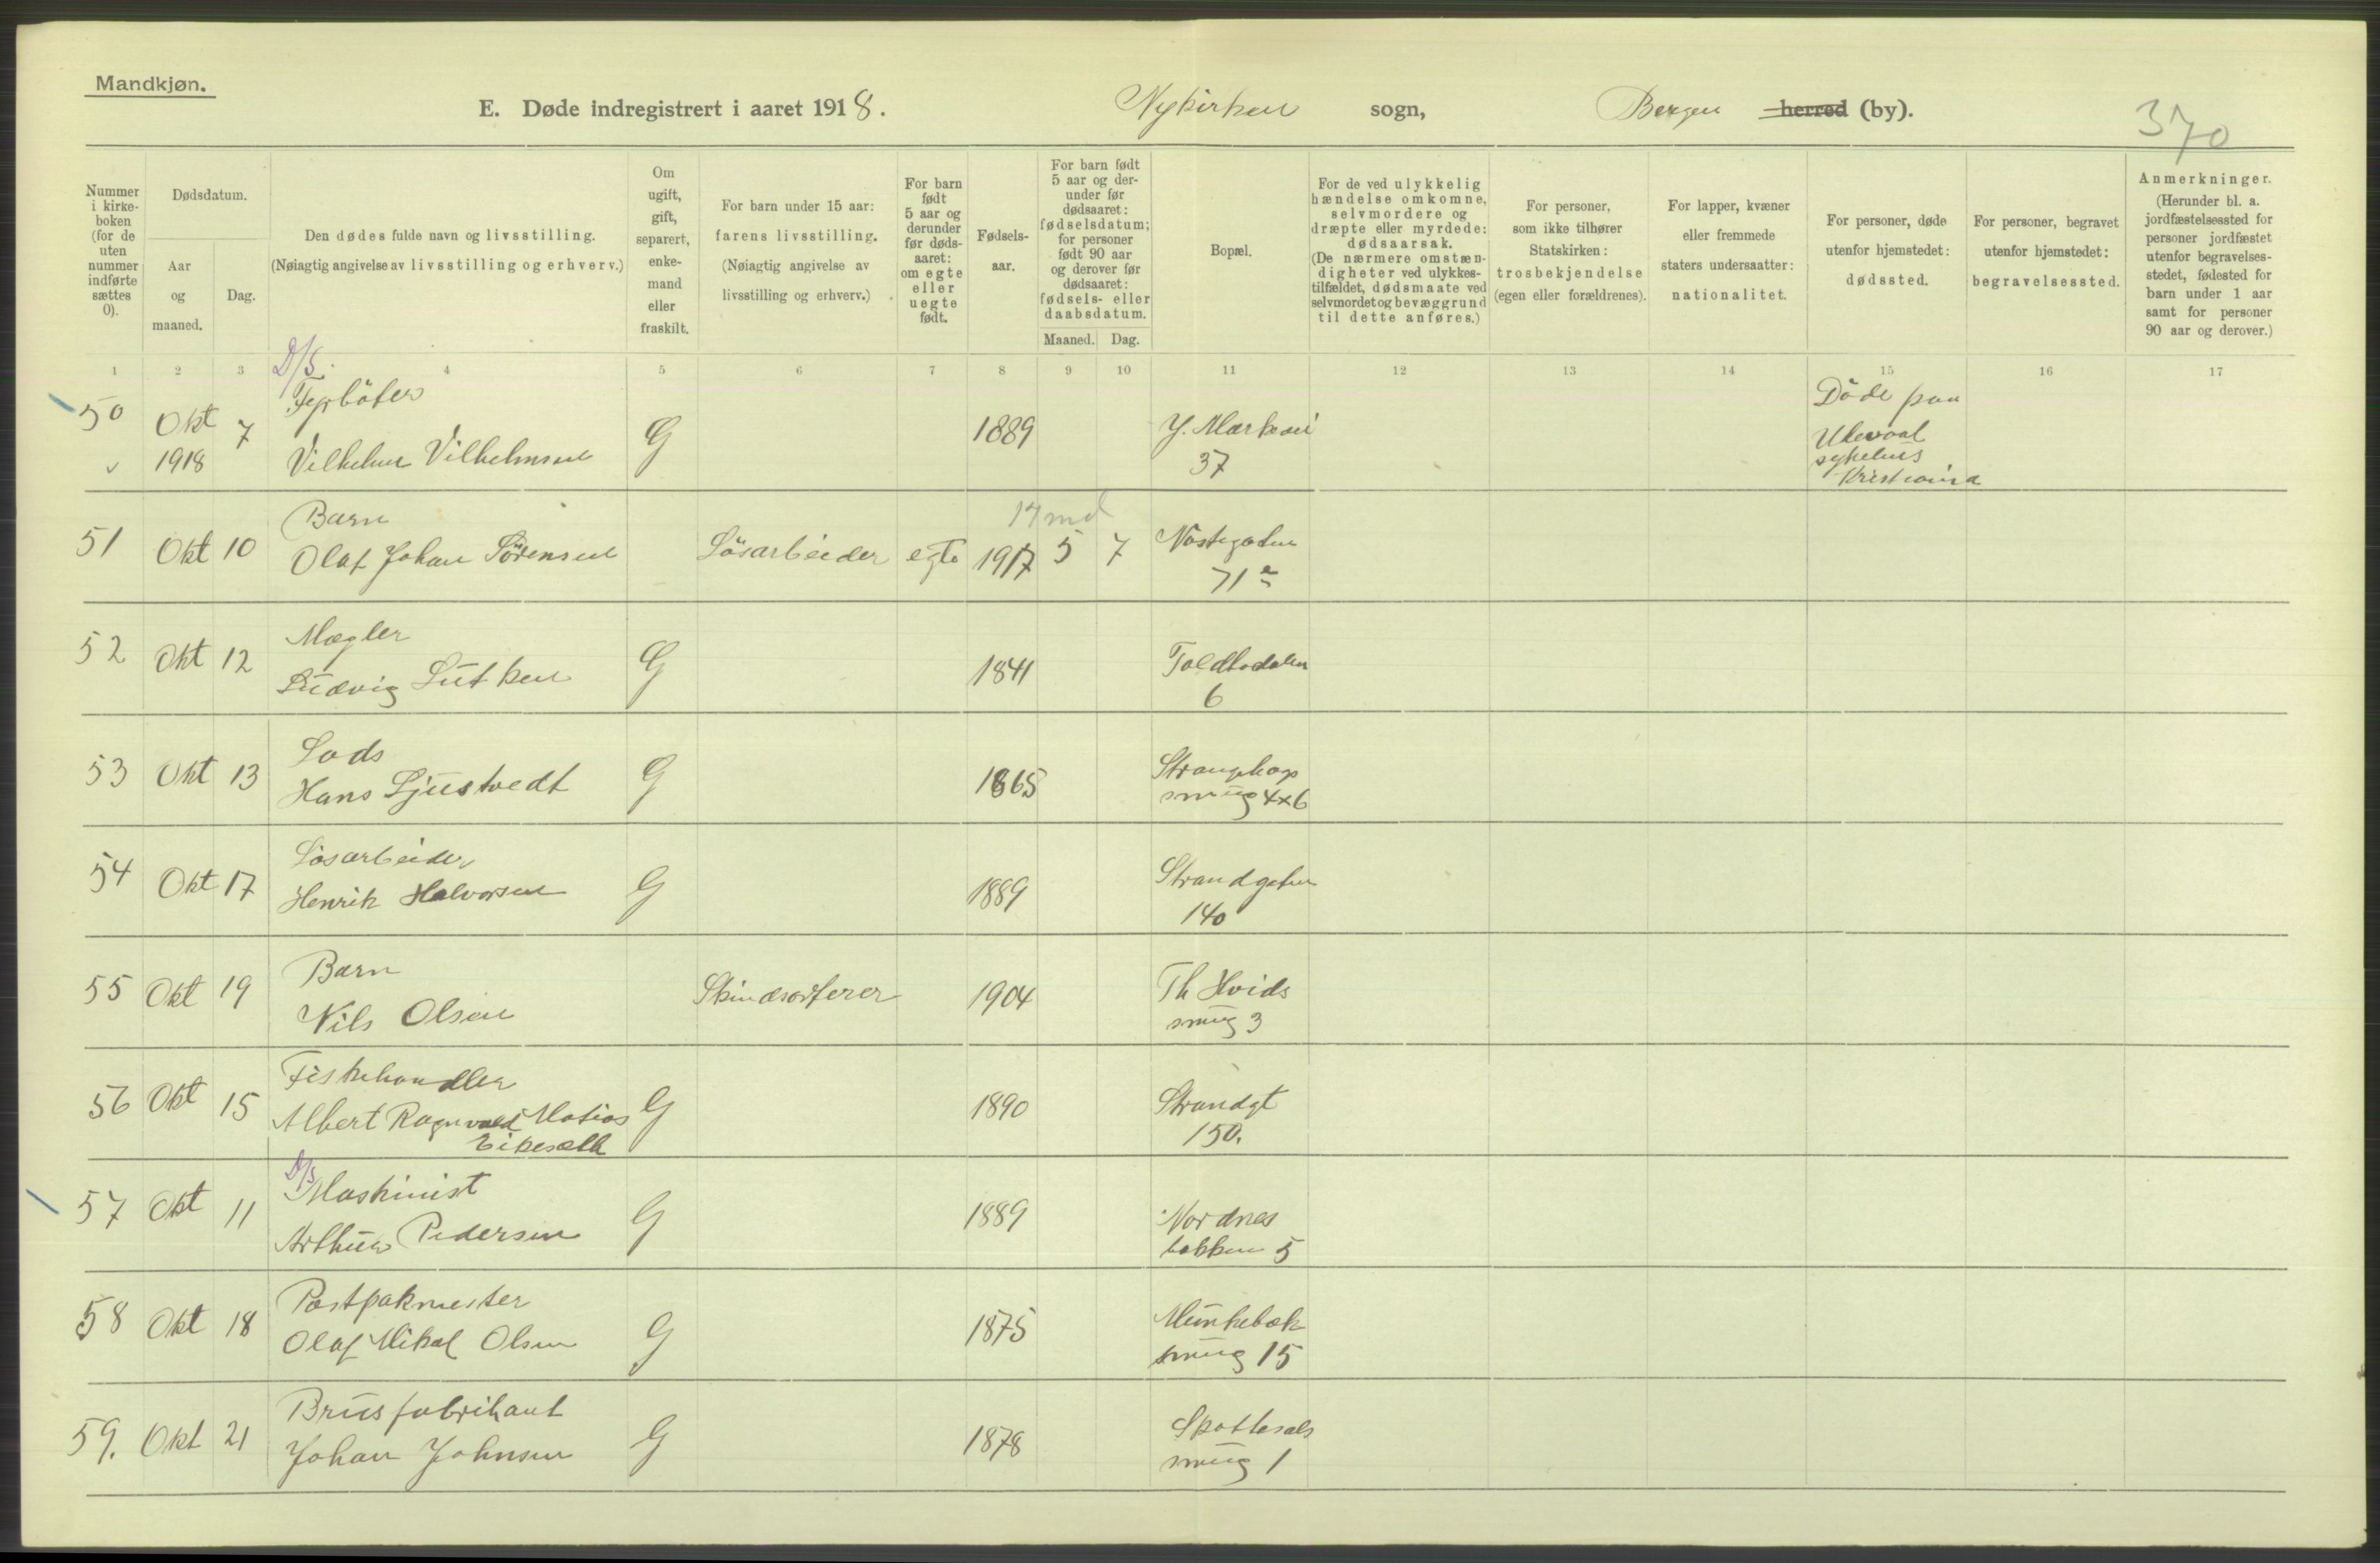 Mandkjøn.
E. Døde indregistrert i aaret 1918. Nykirken sogn, Bergen herred (by).
370
Nummer i kirke-boken (for de uten nummer indførte sættes 0).
Dødsdatum.
Aar og maaned.
Dag.
Den dødes fulde navn og livsstilling.
(Nøiagtig angivelse av livsstilling og erhverv.)
Om ugift, gift, separert, enke-mand eller fraskilt.
For barn under 15 aar:
farens livsstilling.
(Nøiagtig angivelse av
livsstilling og erhverv.)
For barn født 5 aar og derunder før døds-aaret: om egte eller uegte født.
Fødsels-aar.
For barn født 5 aar og der-under før dødsaaret: fødselsdatum; for personer født 90 aar og derover før dødsaaret: fødsels- eller daabsdatum.
Maaned. Dag.
Bopæl.
For de ved ulykkelig hændelse omkomne, selvmordere og dræpte eller myrdede: dødsaarsak.
(De nærmere omstæn-digheter ved ulykkes-tilfældet, dødsmaate ved selvmordet og bevæggrund til dette anføres.)
For personer, som ikke tilhører Statskirken: trosbekjendelse (egen eller forældrenes).
For lapper, kvæner eller fremmede staters undersaatter: nationalitet.
For personer, døde utenfor hjemstedet: dødssted.
For personer, begravet utenfor hjemstedet: begravelsessted.
Anmerkninger.
(Herunder bl. a. jordfæstelsessted for personer jordfæstet utenfor begravelses-stedet, fødested for barn under 1 aar samt for personer 90 aar og derover.)
1 2 3 4 5 6 7 8 9 10 11 12 13 14 15 16 17
D/S.
Fyrböter
50 Okt 1918 7 Vilhelm Vilhelmsen G 1889 Y. Markvei 37
Döde paa
Ulevaal
sykehus
Kristiania
Barn
17 md
51 Okt 10 Olaf Johan Sörensen Lösarbeider egte 1917 5 7 Nöstegaten
71
Mægler
52 Okt 12 Ludvig Lütken G 1841 Toldbodalm
6
Lods
53 Okt 13 Hans Ljustvedt G 1865 Strangehag
smug 4 x 6
Lösarbeider
54 Okt 17 Henrik Halvorsen G 1889 Strandgaten
140
Barn
55 Okt 19 Nils Olsen Skindsorterer 1904 Th Hvids
smug 3
Fiskehandler
56 Okt 15 Albert Ragnvald Matias G 1890 Strandgt
150.
D/S
Maskinist
57 Okt 11 Arthur Pedersen G 1889 Nordnes
bakken 5
Postpakmester
58 Okt 18 Olaf Mikal Olsen G 1875 Munkebæk
smug 15
Brusfabrikant
59. Okt 21 Johan Johnsen G 1878 Skottesals
smug 1